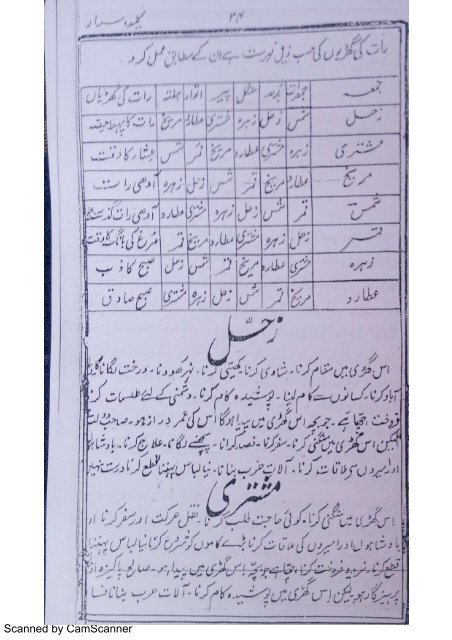 ۳۴
رات کی گھڑیوں کی حسب ذیل فہرست ہے ان کے مطابق عمل کرو۔
جمعہ جمعرات بدھ منگل پیر اتوار ہفتہ رات کی گھڑیاں
زحل شمس زحل زہرہ مشتری عطارد مریخ رات کا پہلا حصہ
مشتری زہرہ مشتری عطارد مریخ قمر شمس عشار کا وقت
مریخ عطارد مریخ قمر شمس زحل زہرہ آدھی رات
شمس قمر شمس زحل زہرہ مشتری عطارد آدھی رات گذشتہ
قمر زحل زہرہ مشتری عطارد مریخ قمر مرغ کی بانگ کا وقت
زہرہ مشتری عطارد مریخ قمر شمس زحل صبح کاذب
عطارد مریخ قمر شمس زحل زہرہ مشتری صبح صادق
زحل
اس گھڑی میں مقام کرنا۔ شادی کرنا۔ کھیتی کرنا۔ نہر کھودنا۔ درخت لگانا
آباد کرنا۔ کسانوں سے کام لینا۔ پوشیدہ کام کرنا۔ دشمنی کے لئے طلسمات کرنا
فروخت اچھا ہے۔ جو بچہ اس گھڑی میں پیدا ہوگا اس کی عمر دراز ہو۔ صاحب دولت
لیکن اس گھڑی میں منگنی کرنا۔ سفر کرنا۔ فصد کرانا۔ پچھنے لگانا۔ علاج کرنا۔ بادشاہوں
اور امیروں کی ملاقات کرنا۔ آلات حرب بنانا۔ نیا لباس پہننا قطع کرنا درست نہیں
مشتری
اس گھڑی میں منگنی کرنا۔ کوئی حاجت طلب کرنا۔ نقل حرکت اور سفر کرنا۔ اور
بادشاہوں اور امیروں کی ملاقات کرنا بڑے کاموں کو شروع کرنا نیا لباس پہننا
قطع کرنا۔ خرید و فروخت کرنا۔ اچھا ہے جو بچہ اس گھڑی میں پیدا ہو۔ صالح پاکیزہ اور
پرہیزگار ہو لیکن اس گھڑی میں پوشیدہ کام کرنا۔ آلات حرب بنانا
Scanned by CamScanner